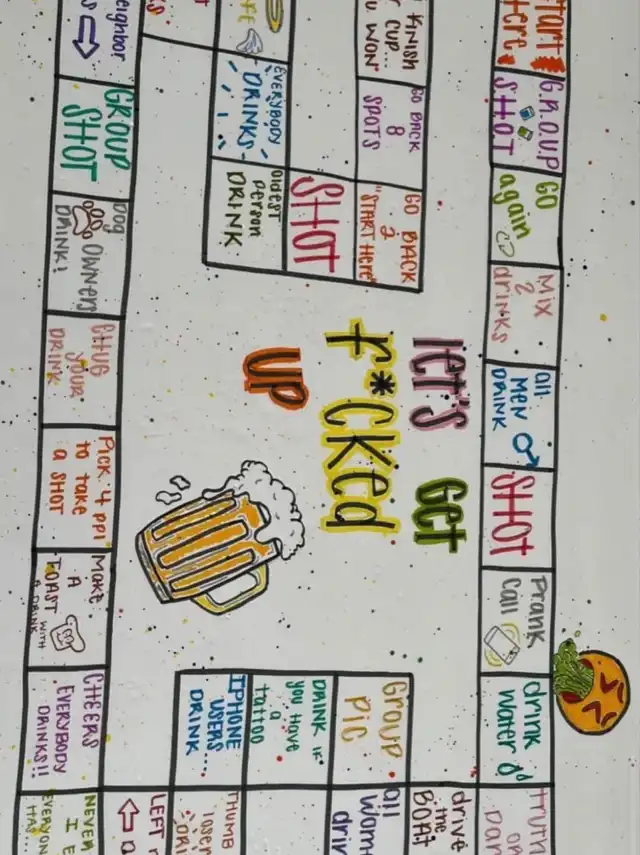 Start
Here
G.R.O.U.P
SHOT
GO
again
Mix
2
drinks
all
MEN
DRINK
SHOT
Prank
Call
drink
water
truth
or
Dare
FINISH
CUP...
U WON
GO BACK
8
SPOTS
GO BACK
2
"START HERE"
SHOT
EVERYBODY
DRINKS
OLDEST
Person
DRINK
LET'S GET
F*CKED
UP
eighbor
GROUP
SHOT
DOG
OWNERS
DRINK!
CHUG
YOUR
DRINK
Pick 4 ppl
to take
a SHOT
MAKE
A
TOAST WITH
A DRINK
CHEERS
EVERYBODY
DRINKS!!
NEVER
I E
EVERYON
HAS...
LEFT
IPHONE
USERS...
DRINK
THUMB
loser
DRI
DRINK IF
you HAVE
a
tattoo
GROUP
PIC
all
Wom
drin
drive
the
BOAT